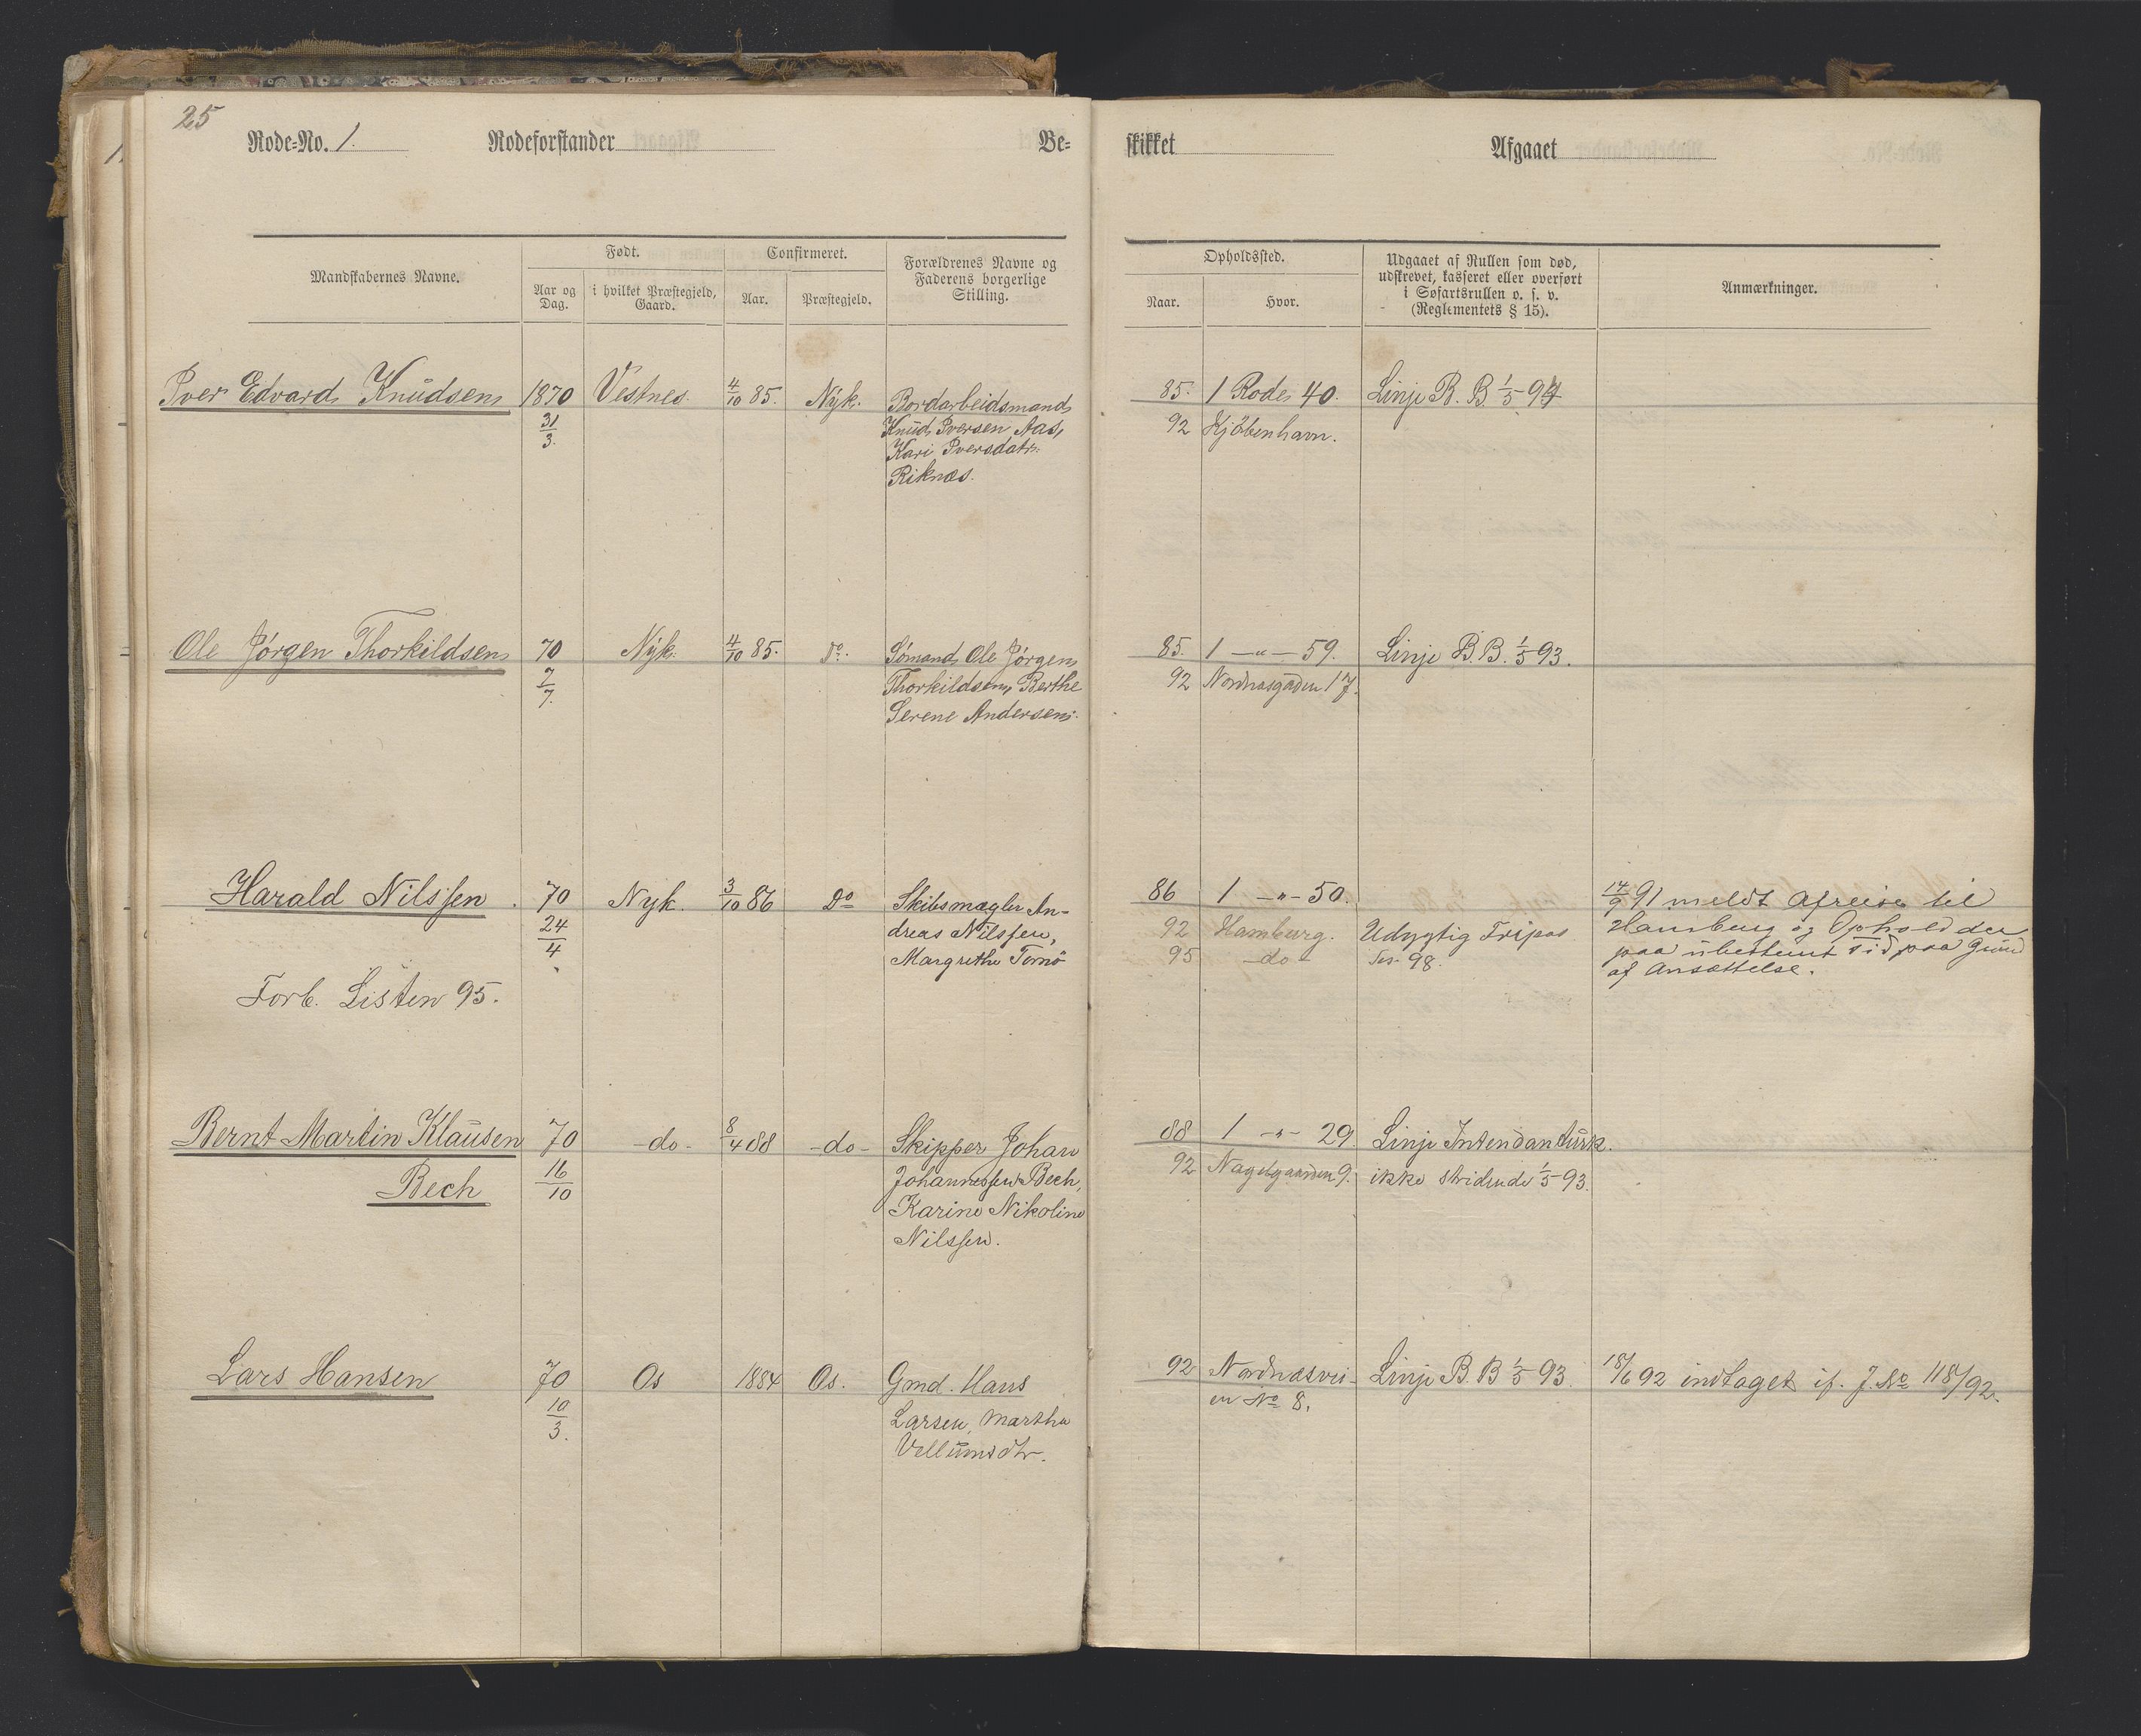 25
Rode=No. 1. Rodeforstander Be=
skikket Afgaaet
Mandskabernes Navne. Født. Confirmeret. Forældrenes Navne og Faderens borgerlige Stilling.
Aar og Dag. i hvilket Præstegjeld, Gaard. Aar. Præstegjeld.
Opholdssted. Udgaaet af Rullen som død, udskrevet, kasseret eller overført i Søfartsrullen o. s. v. (Reglementets § 15). Anmærkninger.
Naar. Hvor.
Iver Edvard Knudsen 1870 Vestnes 4/10 85. Nyk. Bordarbeidsmand
31/3. Knud Iversen Aas,
Kari Iversdatr.
Riknæs.
85. 1 Rode 40. Linje B. B 1/5 94
92 Kjöbenhavn.
Ole Jörgen Thorkildsen 70 Nyk. 4/10 85. Do. Sömand Ole Jörgen
7/7. Thorkildsen, Berthe
Serene Andersen.
85. 1 —"— 59. Linje B. B. 1/5 93.
92 Nordnæsgaden 17.
Harald Nilssen. 70 Nyk. 3/10 86 Do Skibsmægler An-
24/4 dreas Nilssen,
Margrethe
Forb. Listen 95.
86 1 —"— 50. 14/9 91 meldt Afreise til
92 Hamburg. Udygtig Hamburg og Ophold der
95 -do- 98. paa ubestemt Tid paa Grund
af Ansættelse.
Bernt Martin Klausen 70 -do- 8/4 88 -do- Skipper Johan
Bech 16/10 Johannessen Bech,
Karine Nikoline
Nilssen.
88 1 —"— 29. Linje Intendanturk.
92 Nagelgaarden 9. ikke stridende 1/5 93.
Lars Hansen 70 Os 1884 Os. Gmd. Hans
10/3. Larsen, Martha
Vellumsdtr.
92 Nordnæsvei- Linje B. B 1/5 93. 18/6 92 indtaget if. J. No 118/92.
en No 8.